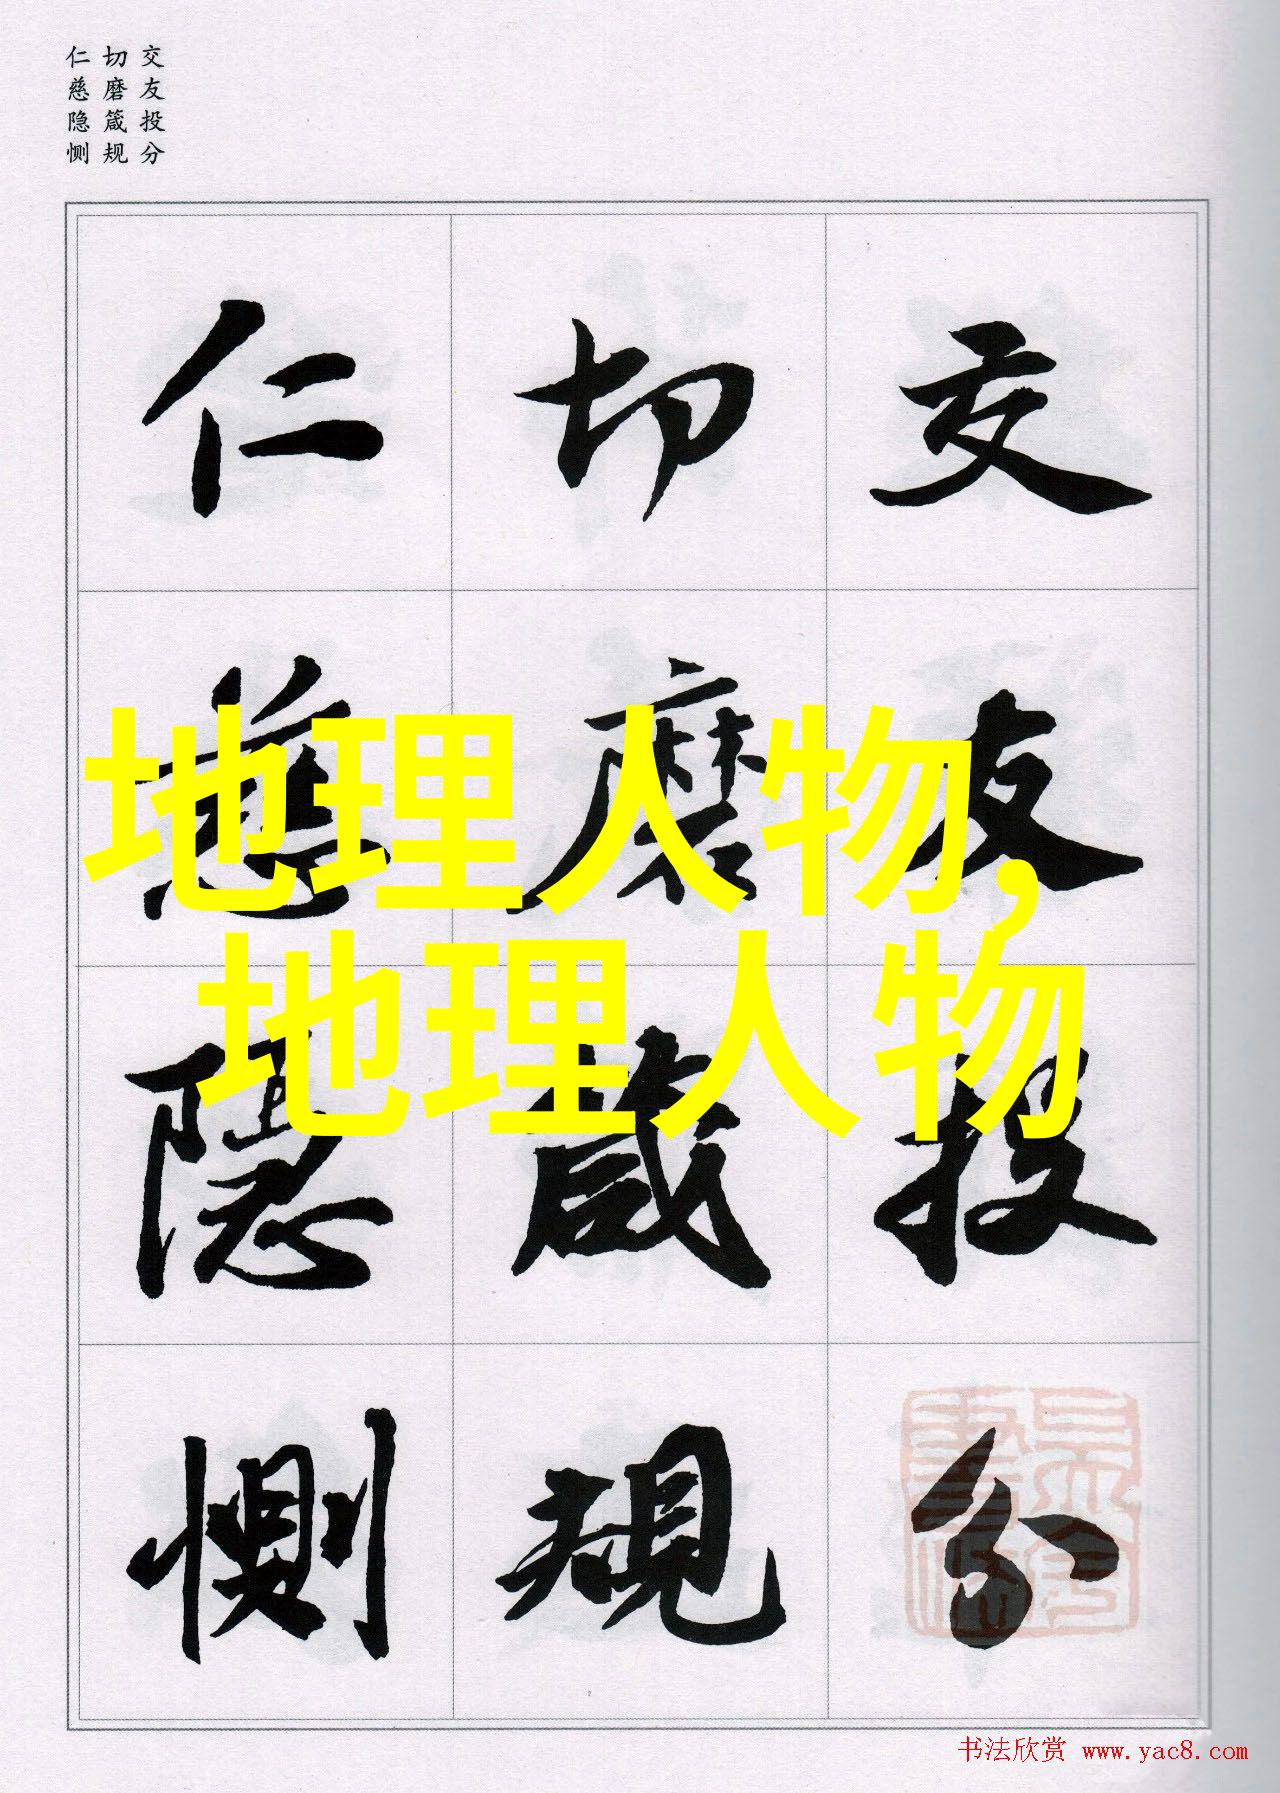 交友投分
切磨箴规
仁慈隐恻
地理人物,
地理人物
交友投分
切磨箴規
仁慈隱惻
书法欣赏 www.yac8.com